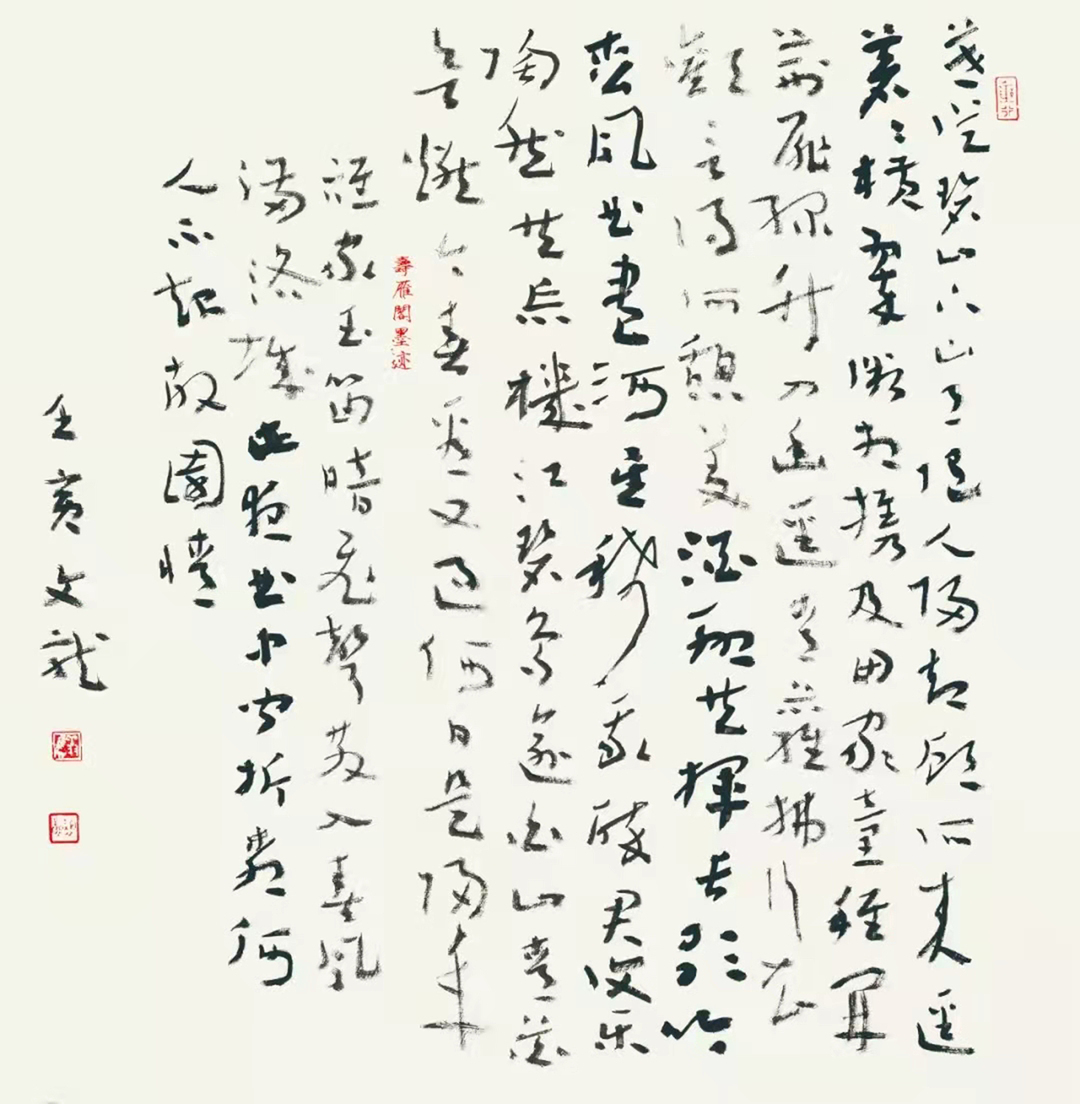 暮從碧山下山月隨人歸却顧所來逕
蒼々橫翠微相携及田家童稚開
荊扉綠竹入幽逕青蘿拂行衣
歡言得所憩美酒聊共揮長歌吟
松風曲盡河星稀我醉君復樂
陶然共忘機江碧鳥逾白山青花
欲燃今春看又過何日是歸年
壽雁閣墨迹
誰家玉笛暗飛聲散入春風
滿洛城此夜曲中聞折柳何
人不起故園情
壬寅文龍